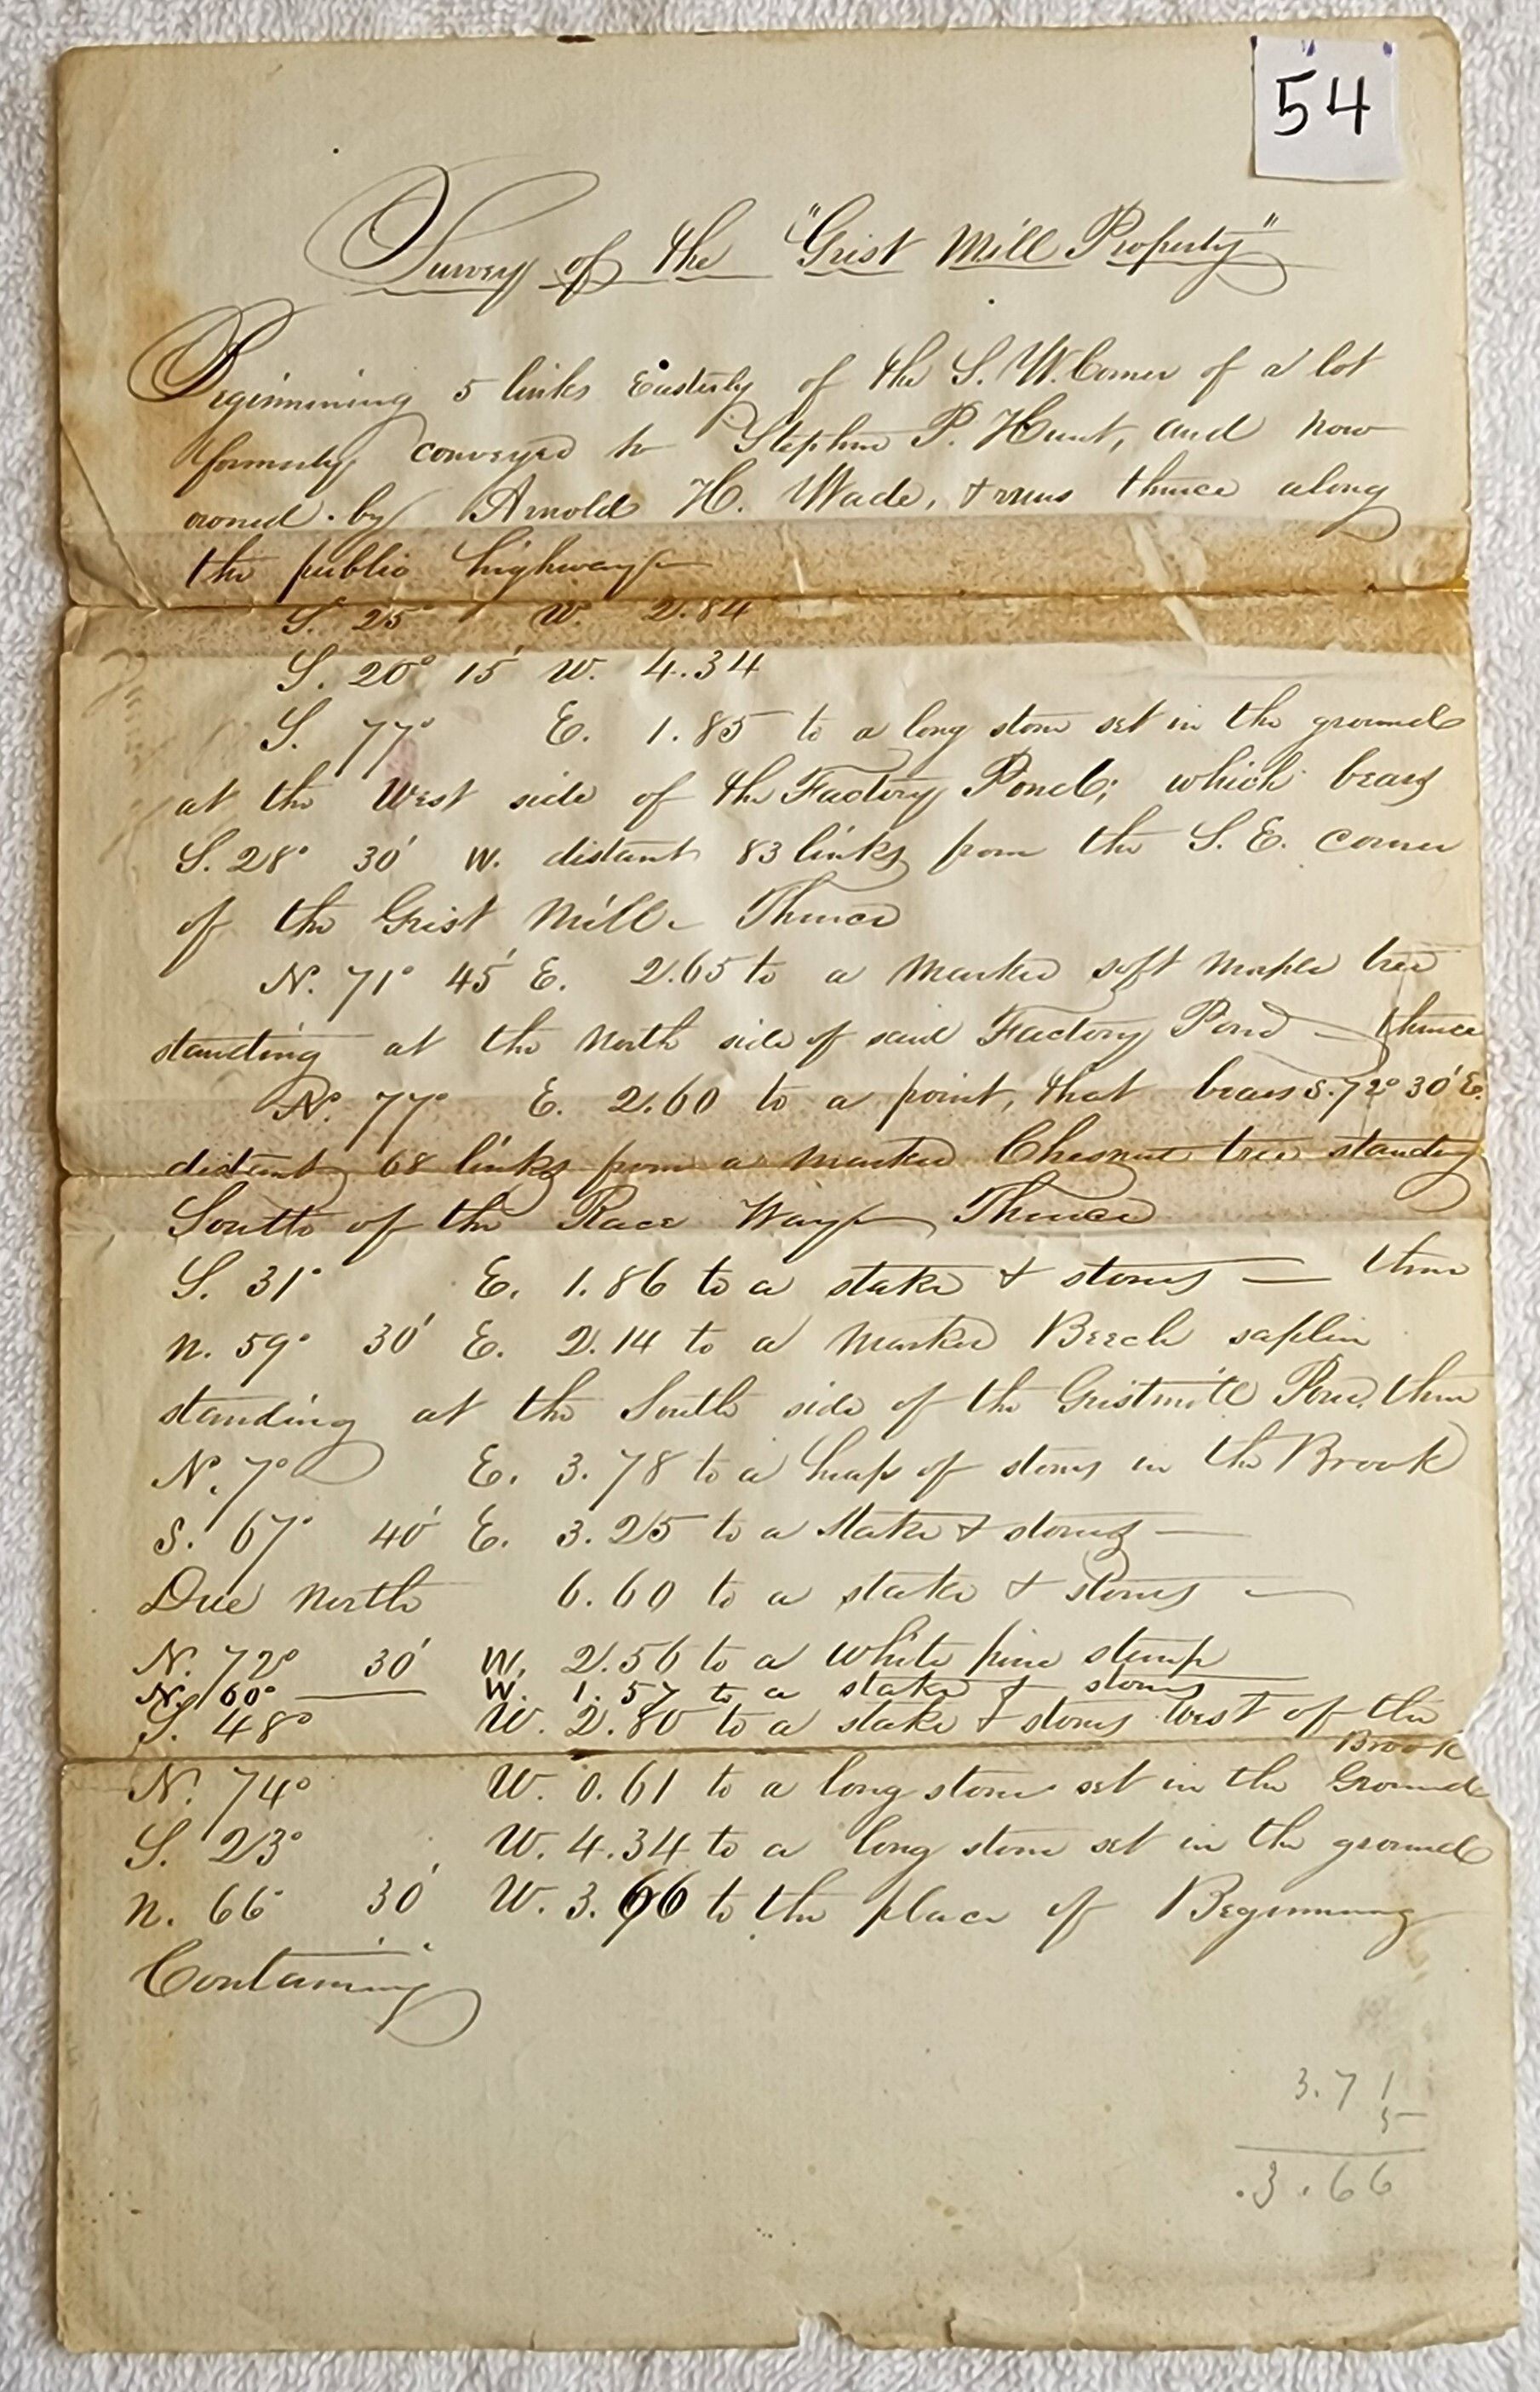 54
Survey of the "Grist Mill Property"
Beginnining 5 links Easterly of the S. W. Corner of a lot
formerly conveyed to Stephen P. Hunt, and now
owned by Arnold H. Wade, & runs thence along
the public highway
S. 25° W. 2.84
S. 20° 15' W. 4.34
S. 77° E. 1.85 to a long stone set in the ground
at the West side of the Factory Pond; which bears
S. 28° 30' W. distant 83 links from the S. E. corner
of the Grist Mill - Thence
N. 71° 45' E. 2.65 to a marked soft maple tree
standing at the North side of said Factory Pond — thence
N. 77° E. 2.60 to a point, that bears S. 72° 30' E.
distant 68 links from a marked Chesnut tree standing
South of the Race Way — Thence
S. 31° E. 1.86 to a stake & stones — then
N. 59° 30' E. 2.14 to a marked Beech saplin
standing at the South side of the Gristmill Pond, then
N. 7° E. 3.78 to a heap of stones in the Brook
S. 67° 40' E. 3.25 to a stake & stones —
Due North 6.60 to a stake & stones —
N. 72° 30' W. 2.56 to a white pine stump
N. 60° — W. 1.57 to a stake & stones
S. 48° W. 2.80 to a stake & stones West of the
Brook
N. 74° W. 0.61 to a long stone set in the Ground
S. 23° W. 4.34 to a long stone set in the ground
N. 66° 30' W. 3.66 to the place of Beginning
Containing
3.71
5
3.66